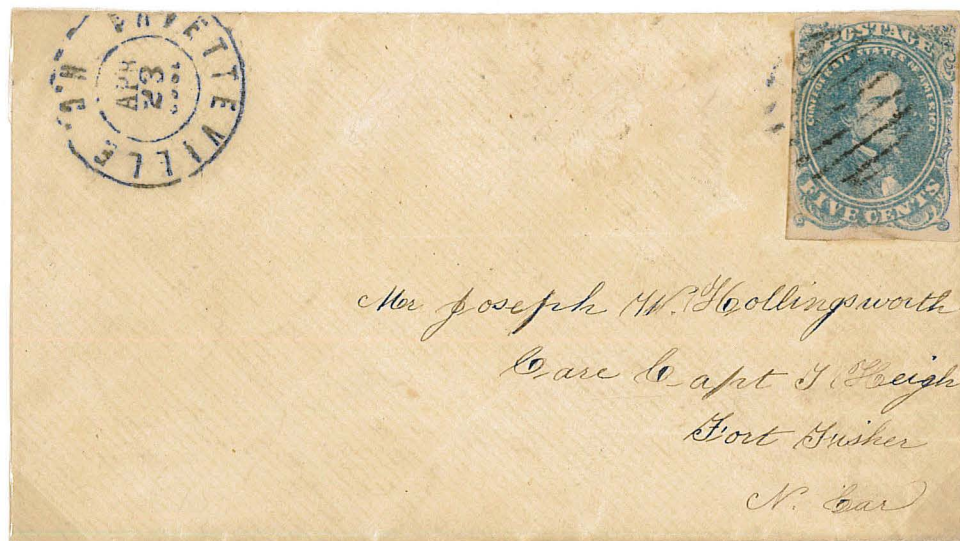 FAYETTEVILLE N.C.
APR
23
POSTAGE
CONFEDERATE STATES OF AMERICA
FIVE CENTS
Mr Joseph W. Hollingsworth
Care Capt
Fort Fisher
N. Car